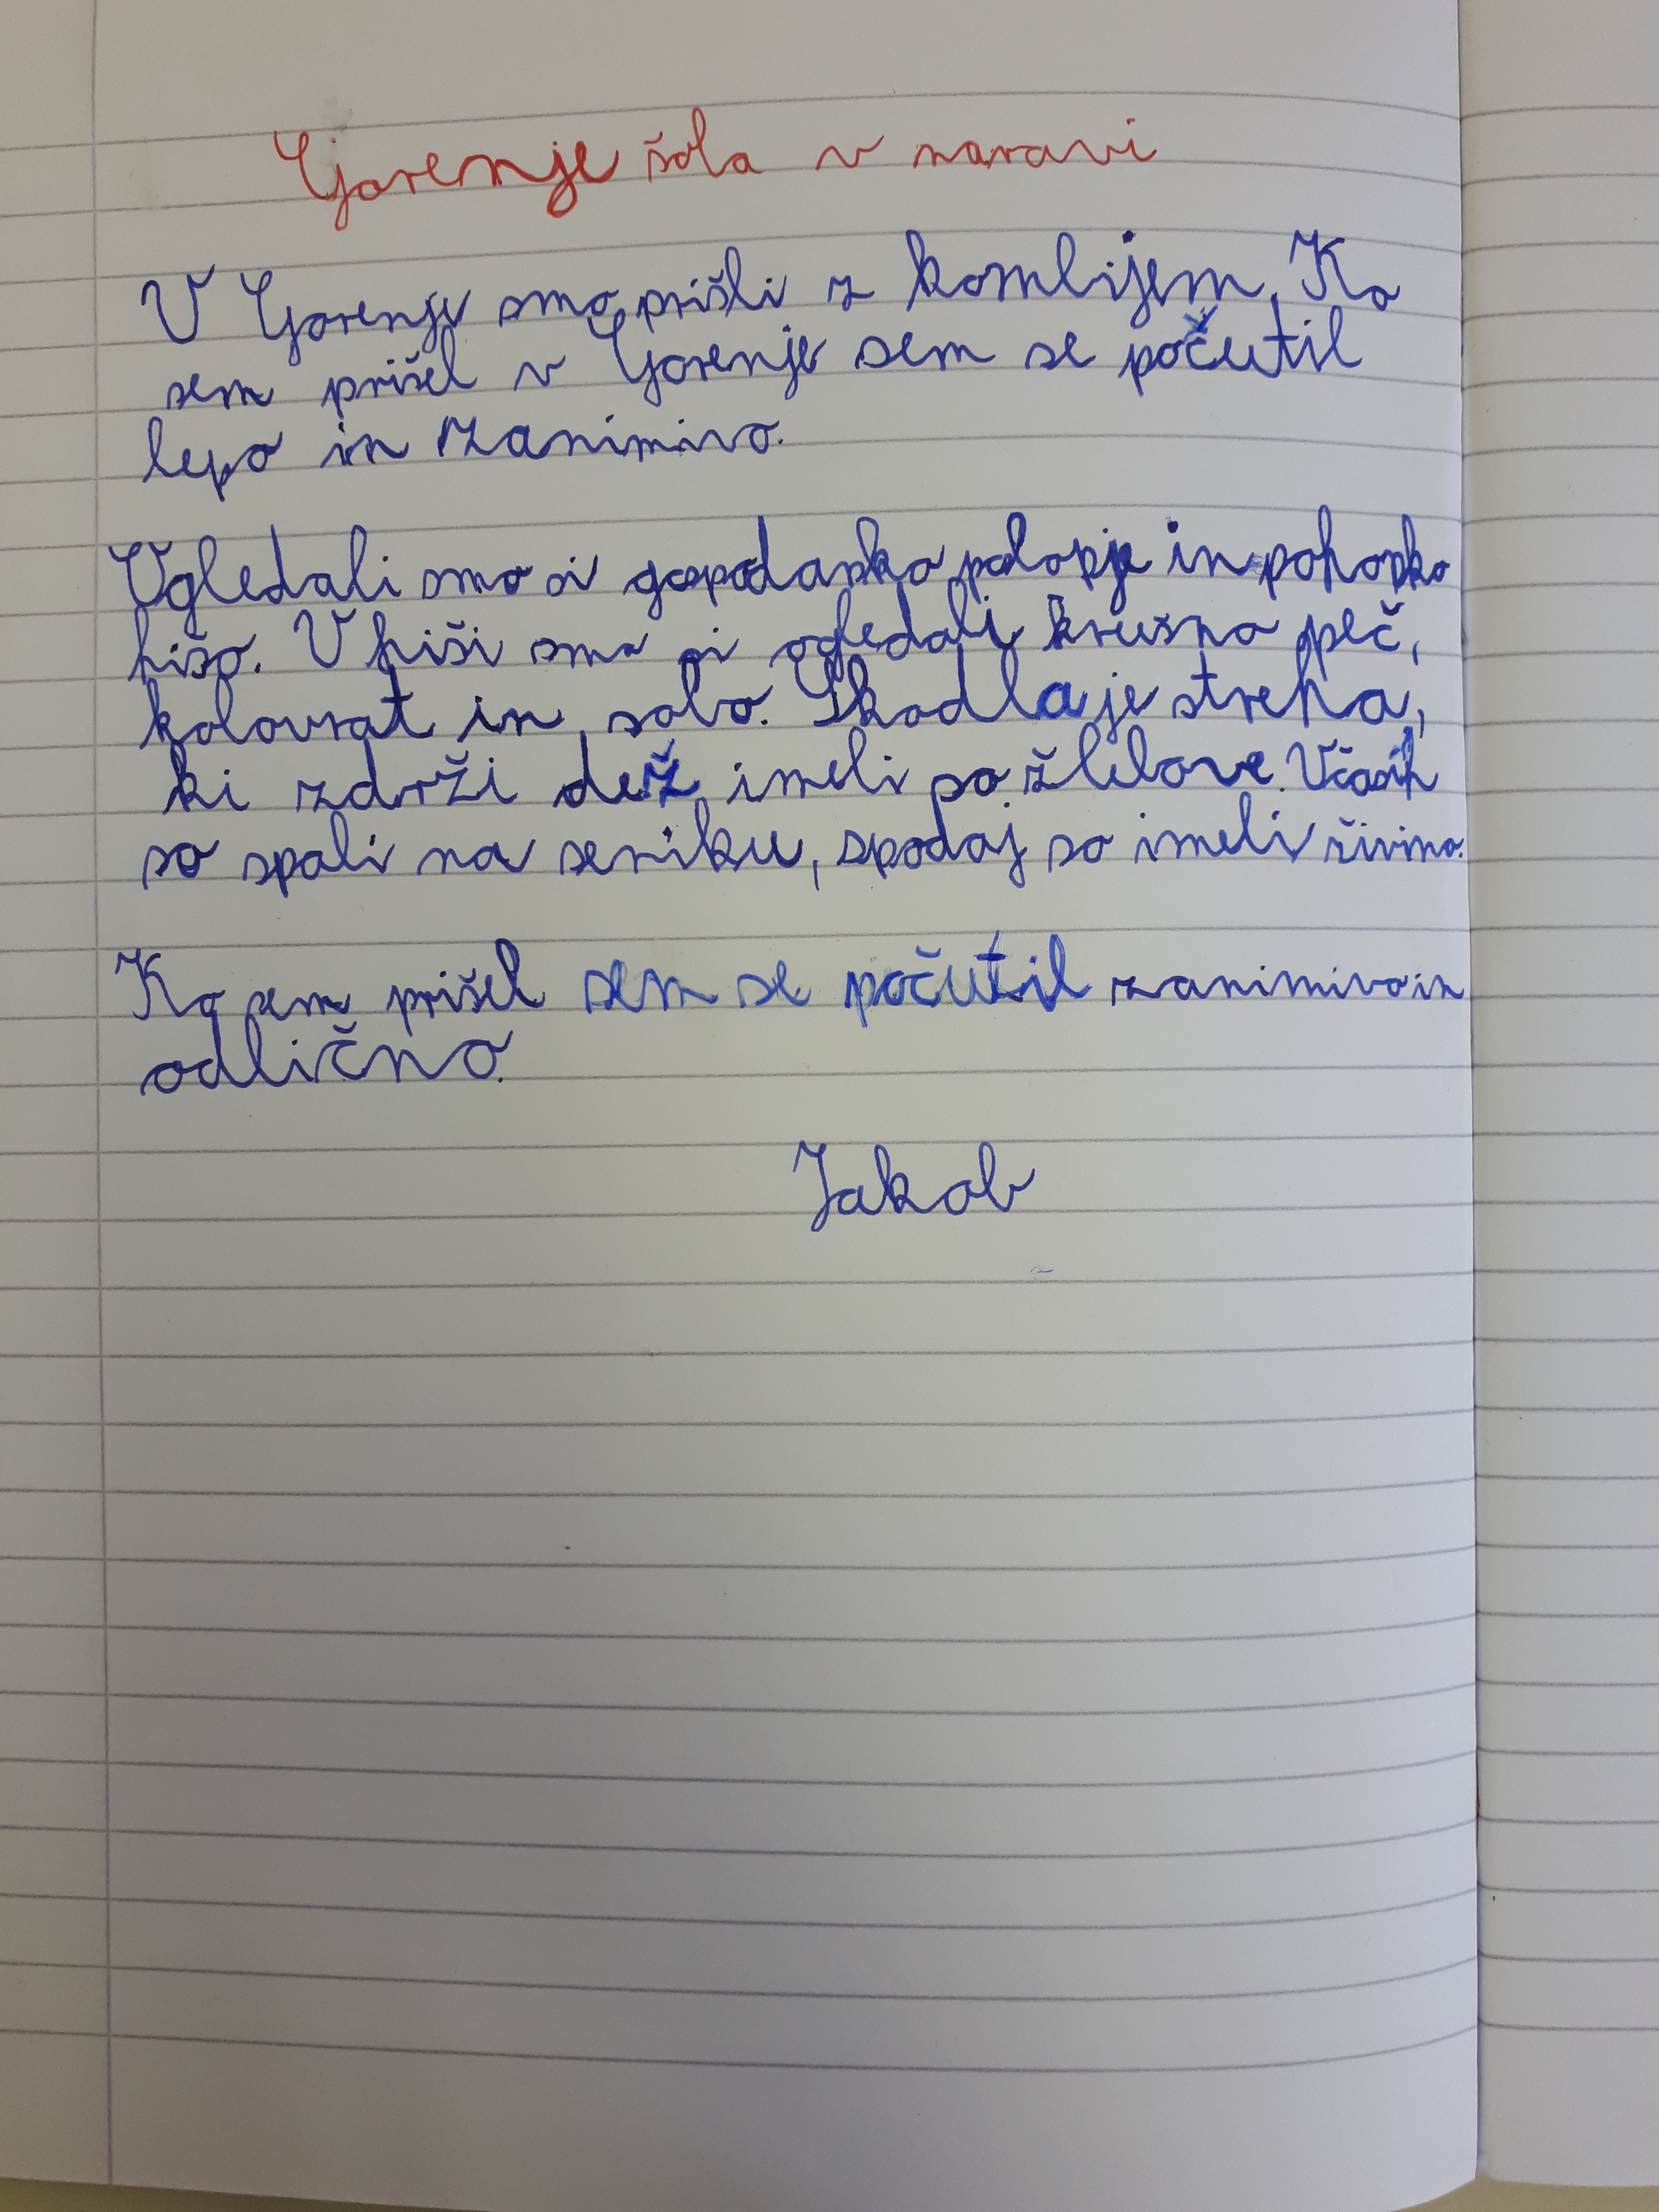 Gorenje šola v naravi
V Gorenje smo prišli z kombijem. Ko
sem prišel v Gorenje sem se počutil
lepo in zanimivo.
Ogledali smo si gospodarsko in pohorsko
hišo. V hiši smo si ogledali krušno peč,
kolovrat in sobo. Skodla je streha,
ki zdrži dež imeli so žlebove. Včasih
so spali na seniku, spodaj so imeli živino.
Ko sem prišel sem se počutil zanimivo in
odlično.
Jakob